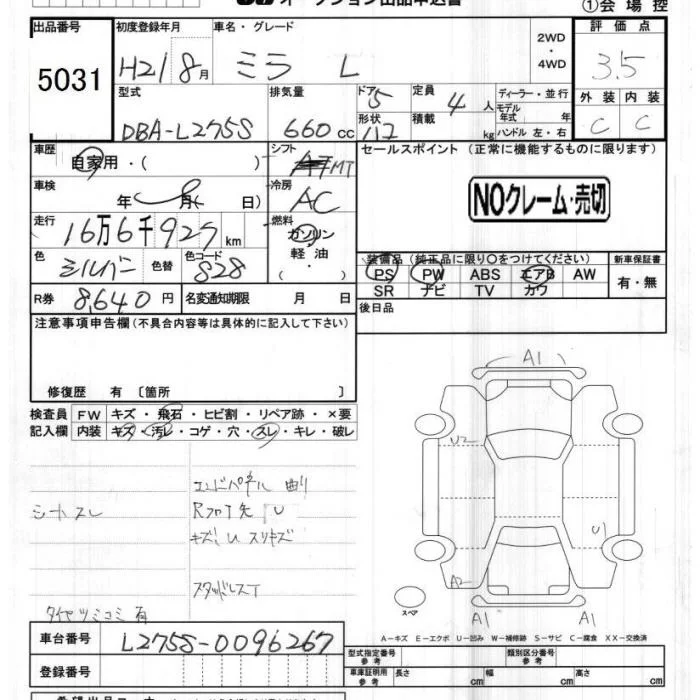 オークション出品申込書
①会場控
出品番号 初度登録年月 車名・グレード 2WD・4WD 評価点
5031 H21 8月 ミラ L 3.5
型式 排気量 ドア 5 定員 4人 ディーラー・並行 外装 内装
DBA-L275S 660cc 形状 積載 kg モデル年式 年 ハンドル 左・右 C C
車歴 自家用・( ) シフト MT セールスポイント (正常に機能するものに限ります)
車検 年 月( 日) 冷房 AC NOクレーム・売切
走行 16万6千927km 燃料 ガソリン 軽油・( )
色 シルバー 色替 色コード S28 装備品 (純正品に限り○をつけてください) 新車保証書
PS PW ABS エアB AW 有・無
SR ナビ TV カワ
R券 8,640円 名変通知期限 月 日 後日品
注意事項申告欄 (不具合内容等は具体的に記入して下さい)
修復歴 有 〔箇所 〕
検査員 FW キズ・飛石・ヒビ割・リペア跡・×要
記入欄 内装 キズ・汚レ・コゲ・穴・スレ・キレ・破レ
A1
U2
エンドパネル 曲り
シートスレ Rフロア先 U
キズ、U スリキズ
U1
スタッドレスT
A2
タイヤツミコミ 有
スペア
A1 A1
A−キズ E−エクボ U−凹み W−補修跡 S−サビ C−腐食 XX−交換済
車台番号 L275S-0096267
型式指定番号 参考 類別区分番号 参考
登録番号 車庫証明用 参考 長さ cm 幅 cm 高さ cm